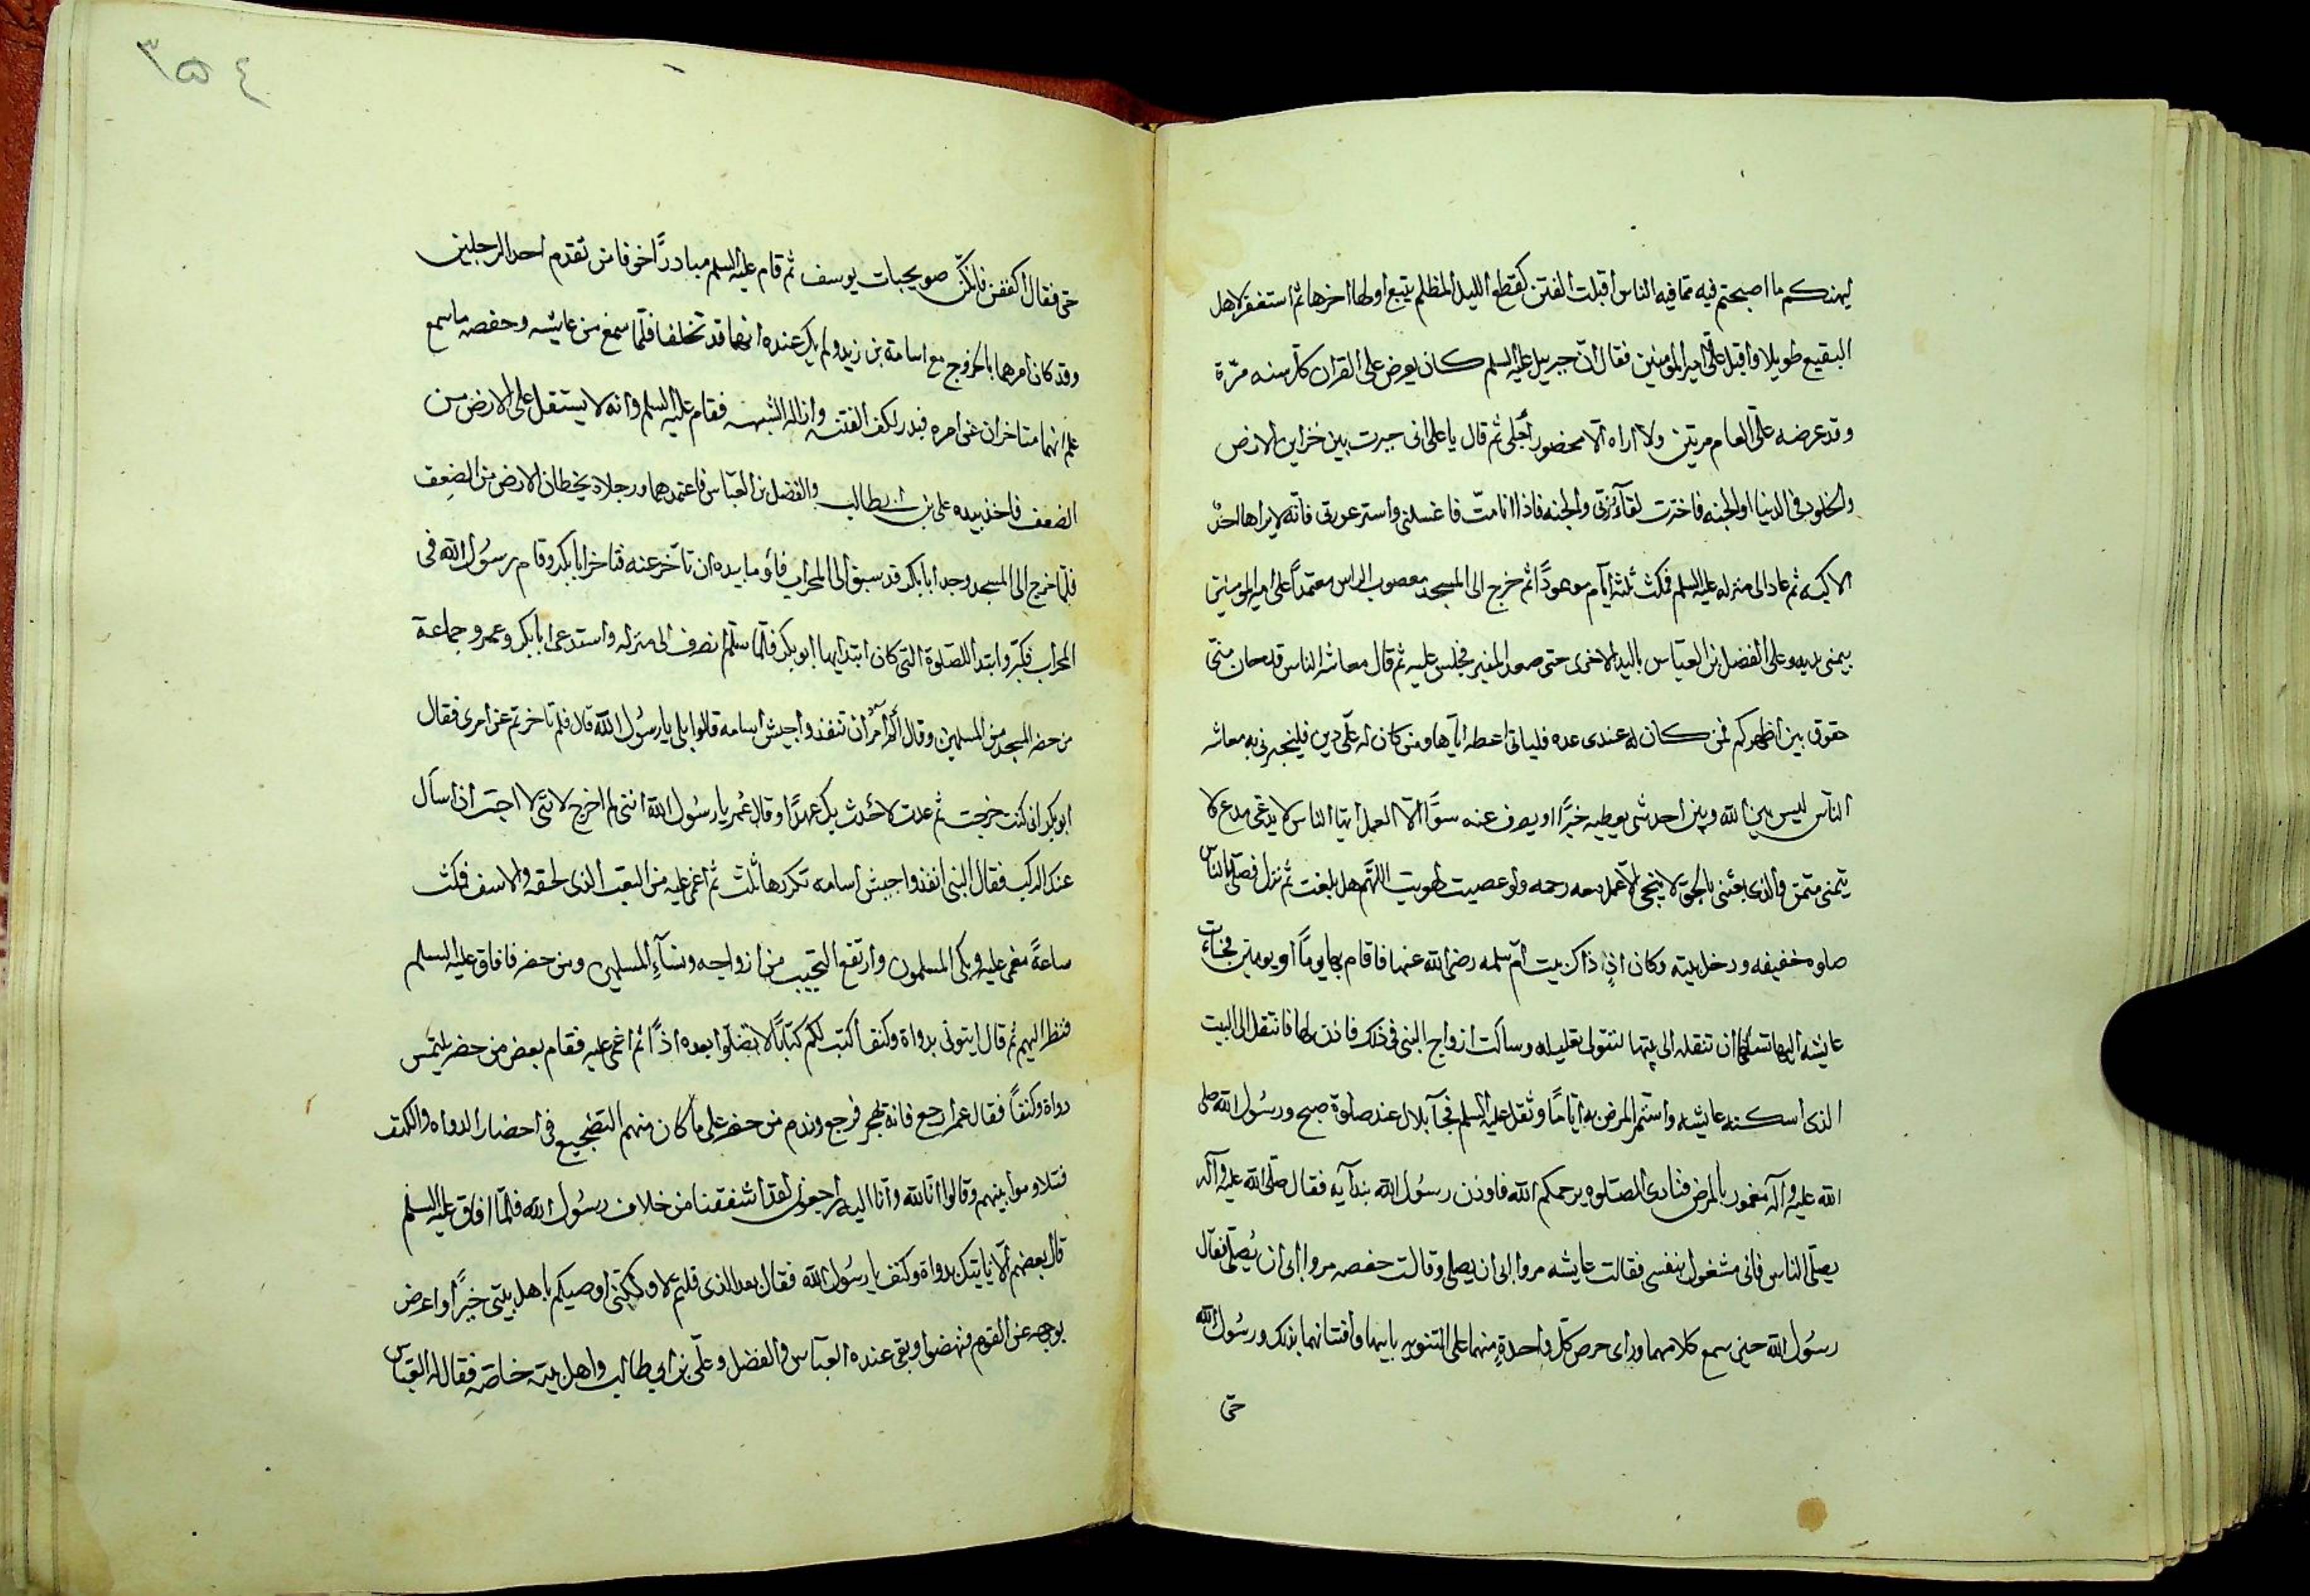 ليهنكم ما اصبحتم فيه مما فيه الناس اقبلت الفتن كقطع الليل المظلم يتبع اولها اخرها ثم استغفر لاهل
البقيع طويلا واقبل على امير المومنين فقال ان جبرييل عليه السلم كان يعرض على القران كل سنه مرّة
وقد عرضه علىّ العام مرتين ولا اراه الّا لحضور أجلى ثم قال يا على انى خيرت بين خزاين الارض
والخلود فى الدنيا او الجنه فاخترت لقآء ربّى والجنه فاذا انا متّ فاغسلنى واستر عورتى فانّه لا يراها احدٌ
الا اكمه ثم عاد الى منزله عليه السلم فمكث ثلثه ايّام موعودًا ثم خرج الى المسجد معصوب الراس معتمدًا على امير المومنين
بيمنى يديه وعلى الفضل بن العباس باليد الاخرى حتى صعد المنبر فجلس عليه ثم قال معاشر الناس قد حان منّى
حقوق بين اظهركم فمن كان له عندى عده فلياتى اعطه ايّاها ومن كان له علّى دين فليخبرنى به معاشر
الناس ليس بين الله وبين احد شى يعطيه خيرًا او يصرف عنه سوًا الّا العمل ايّها الناس لا يدّعى مدع ولا
يتمنى متمن والذى بعثنى بالحق لا ينجى الّا عمل معه رحمه ولو عصيت لهويت اللّهم هل بلغت ثم نزل فصلّى بالناس
صلوه خفيفه ودخل بيته وكان اذٍ ذاك بيت امّ سلمه رضى الله عنها فاقام بها يومًا او يومين فجاءت
عايشه اليها تسئلها ان تنقله الى بيتها لتتولى تعليله وسالت ازواج النبى فى ذلك فاذن لها فانتقل الى البيت
الذى اسكنه عايشه واستمر المرض به ايّامًا وثقل عليه السلم فجآ بلال عند صلوة صبح ورسُول الله صلى
الله عليه وآله مغمور بالمرض فنادى الصّلوه يرحمكم الله فاوذن رسُول الله بندآيه فقال صلّى الله عليه وآله
يصلّى الناس فانى مشغول بنفسى فقالت عايشه مروا ابى ان يصلى وقالت حفصه مروا ابى ان يُصلّى فقال
رسُول الله حين سمع كلامهما وراى حرص كلّ واحدةٍ منهما على التنويه بابيها وافتتانهما بذلك ورسُول الله
حتى
٣٥٤
حتى فقال اكففن فانكنّ صويحبات يوسف ثم قام عليه السلم مبادرًا خوفا من تقدم احد الرجلين
وقد كان امرهما بالخروج مع اسامة بن زيد ولم يك عنده انهما قد تخلفا فلمّا سمع من عايشه وحفصه ما سمع
علم انهما متاخران عن امره فبدر لكف الفتنه وازاله الشبهه فقام عليه السلم وانه لا يستقل على الارض من
الضعف فاخذ بيده على بن ابيطالب والفضل بن العبّاس فاعتمدهما ورجلاه يخطان الارض من الضعِف
فلمّا خرج الى المسجد وجد ابا بكر قد سبق الى المحراب فأومأ بيده ان تأخر عنه فتاخر ابا بكر وقام رسُول الله فى
المحراب فكبّر وابتدا للصّلوة التى كان ابتدا بها ابو بكر فلمّا سلّم انصرف الى منزله واستدعى ابا بكر وعمر وجماعة
من حضر المسجد من المسلمين وقال ألم آمُر ان تنفذوا جيش اسامه قالوا بلى يا رسُول الله قال فلم تاخرتم عن امرى فقال
ابو بكر انى كنت خرجت ثم عدت لاحُدث بك عهدًا وقال عُمر يا رسُول الله اننى لم اخرج لانّنى لا احبّ ان اسآل
عنك الركب فقال النبى انفذوا جيش اسامه تكررها ثلث ثم اغمى عليه من التعب الذى لحقه والاسف فمكث
ساعةً مغمى عليه وبكى المسلمون وارتفع النحيب من ازواجه ونسآءِ المسلمين ومن حضر فافاق عليه السلم
فنظر اليهم ثم قال ايتونى بدواة وكتف اكتب لكم كتابًا لا تضلّوا بعده اذًا ثم اغمى عليه فقام بعض من حضر يلتمس
دواة وكتفًا فقال عمر ارجع فانه يهجر فرجع وندم من حضر على ما كان منهم التضجيع فى احضار الدواه والكتف
فتلاوموا بينهم وقالوا انّا لله وانّا اليه راجعون لقد اشفقنا من خلاف رسُول الله فلمّا افاق عليه السلم
قال بعضهم آلا ناييتك بدواة وكتف يا رسُول الله فقال بعد الذى قلتم لا ولكنّى اوصيكم باهل بيتى خيرًا واعرض
بوجهه عن القوم فنهضوا وبقى عنده العبّاس والفضل وعلّى بن ابي طالب واهل بيته خاصّه فقال له العبّاس